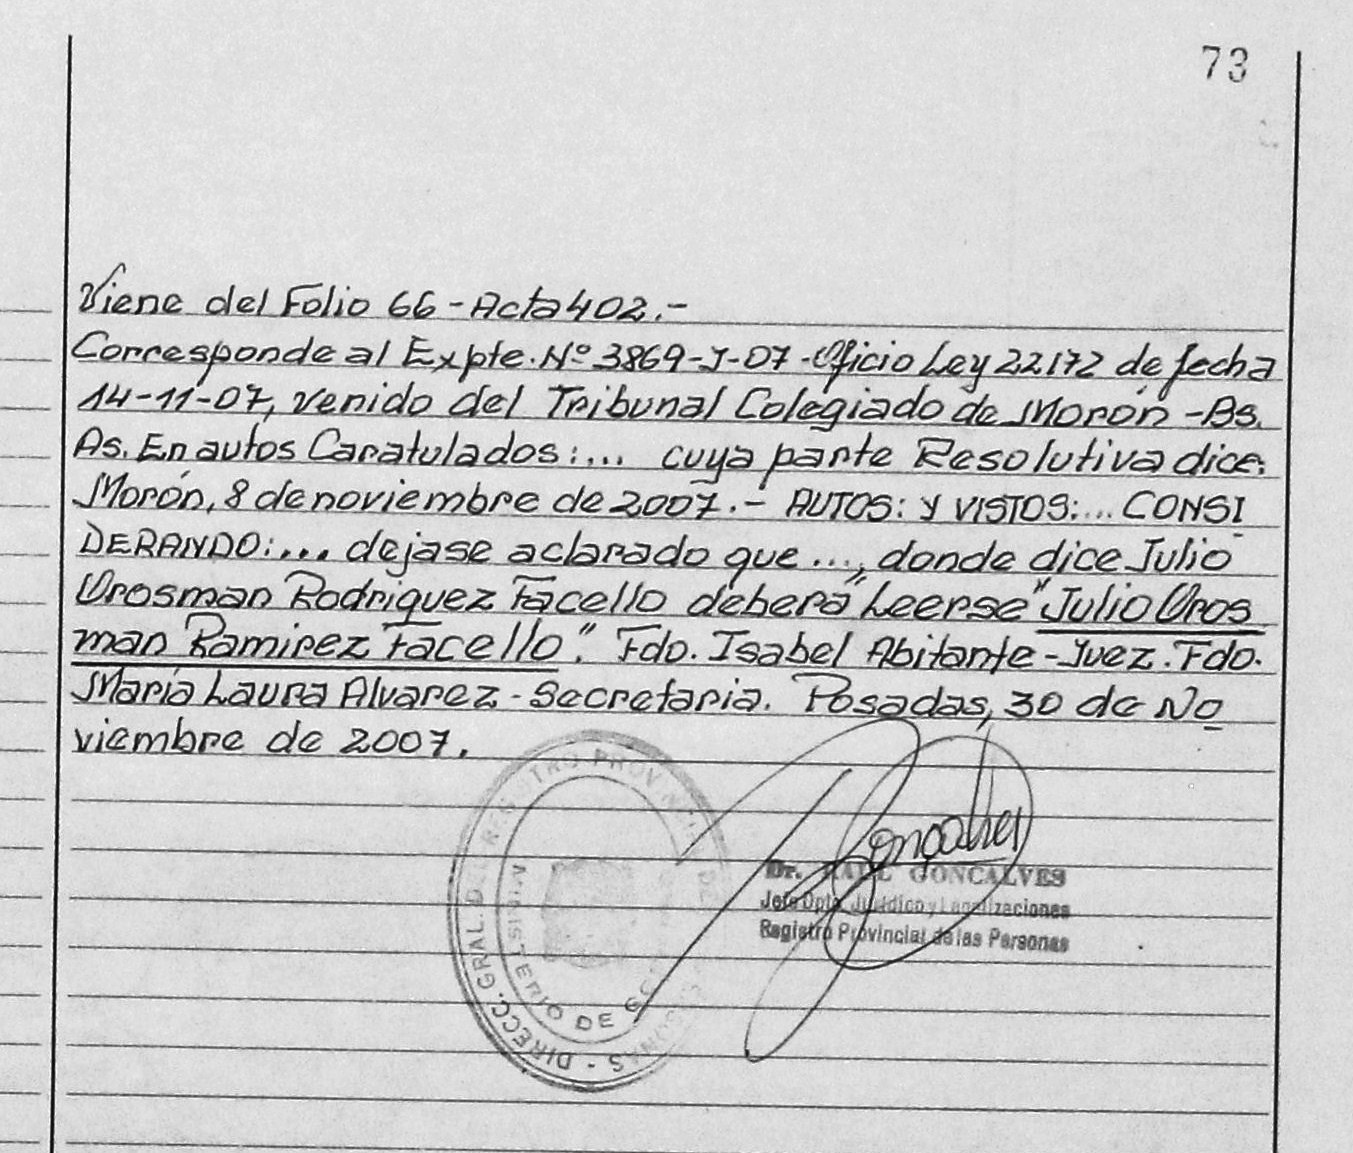 73
Viene del Folio 66 - Acta 402.-
Corresponde al Expte. Nº 3869-J-07 - Oficio Ley 22172 de fecha
14-11-07, venido del Tribunal Colegiado de Morón - Bs.
As. En autos Caratulados:... cuya parte Resolutiva dice:
Morón, 8 de noviembre de 2007.- AUTOS: Y VISTOS:... CONSI
DERANDO:... dejase aclarado que ..., donde dice Julio
Orosman Rodriguez Facello deberá "Leerse" Julio Oros
man Ramirez Facello". Fdo. Isabel Abitante - Juez. Fdo.
María Laura Alvarez - Secretaria. Posadas, 30 de No
viembre de 2007.
DIRECC. GRAL. DEL REGISTRO PROVINCIAL DE
MINISTERIO DE
Dr. RAUL GONCALVES
Jefe Dpto. Jurídico y Legalizaciones
Registro Provincial de las Personas